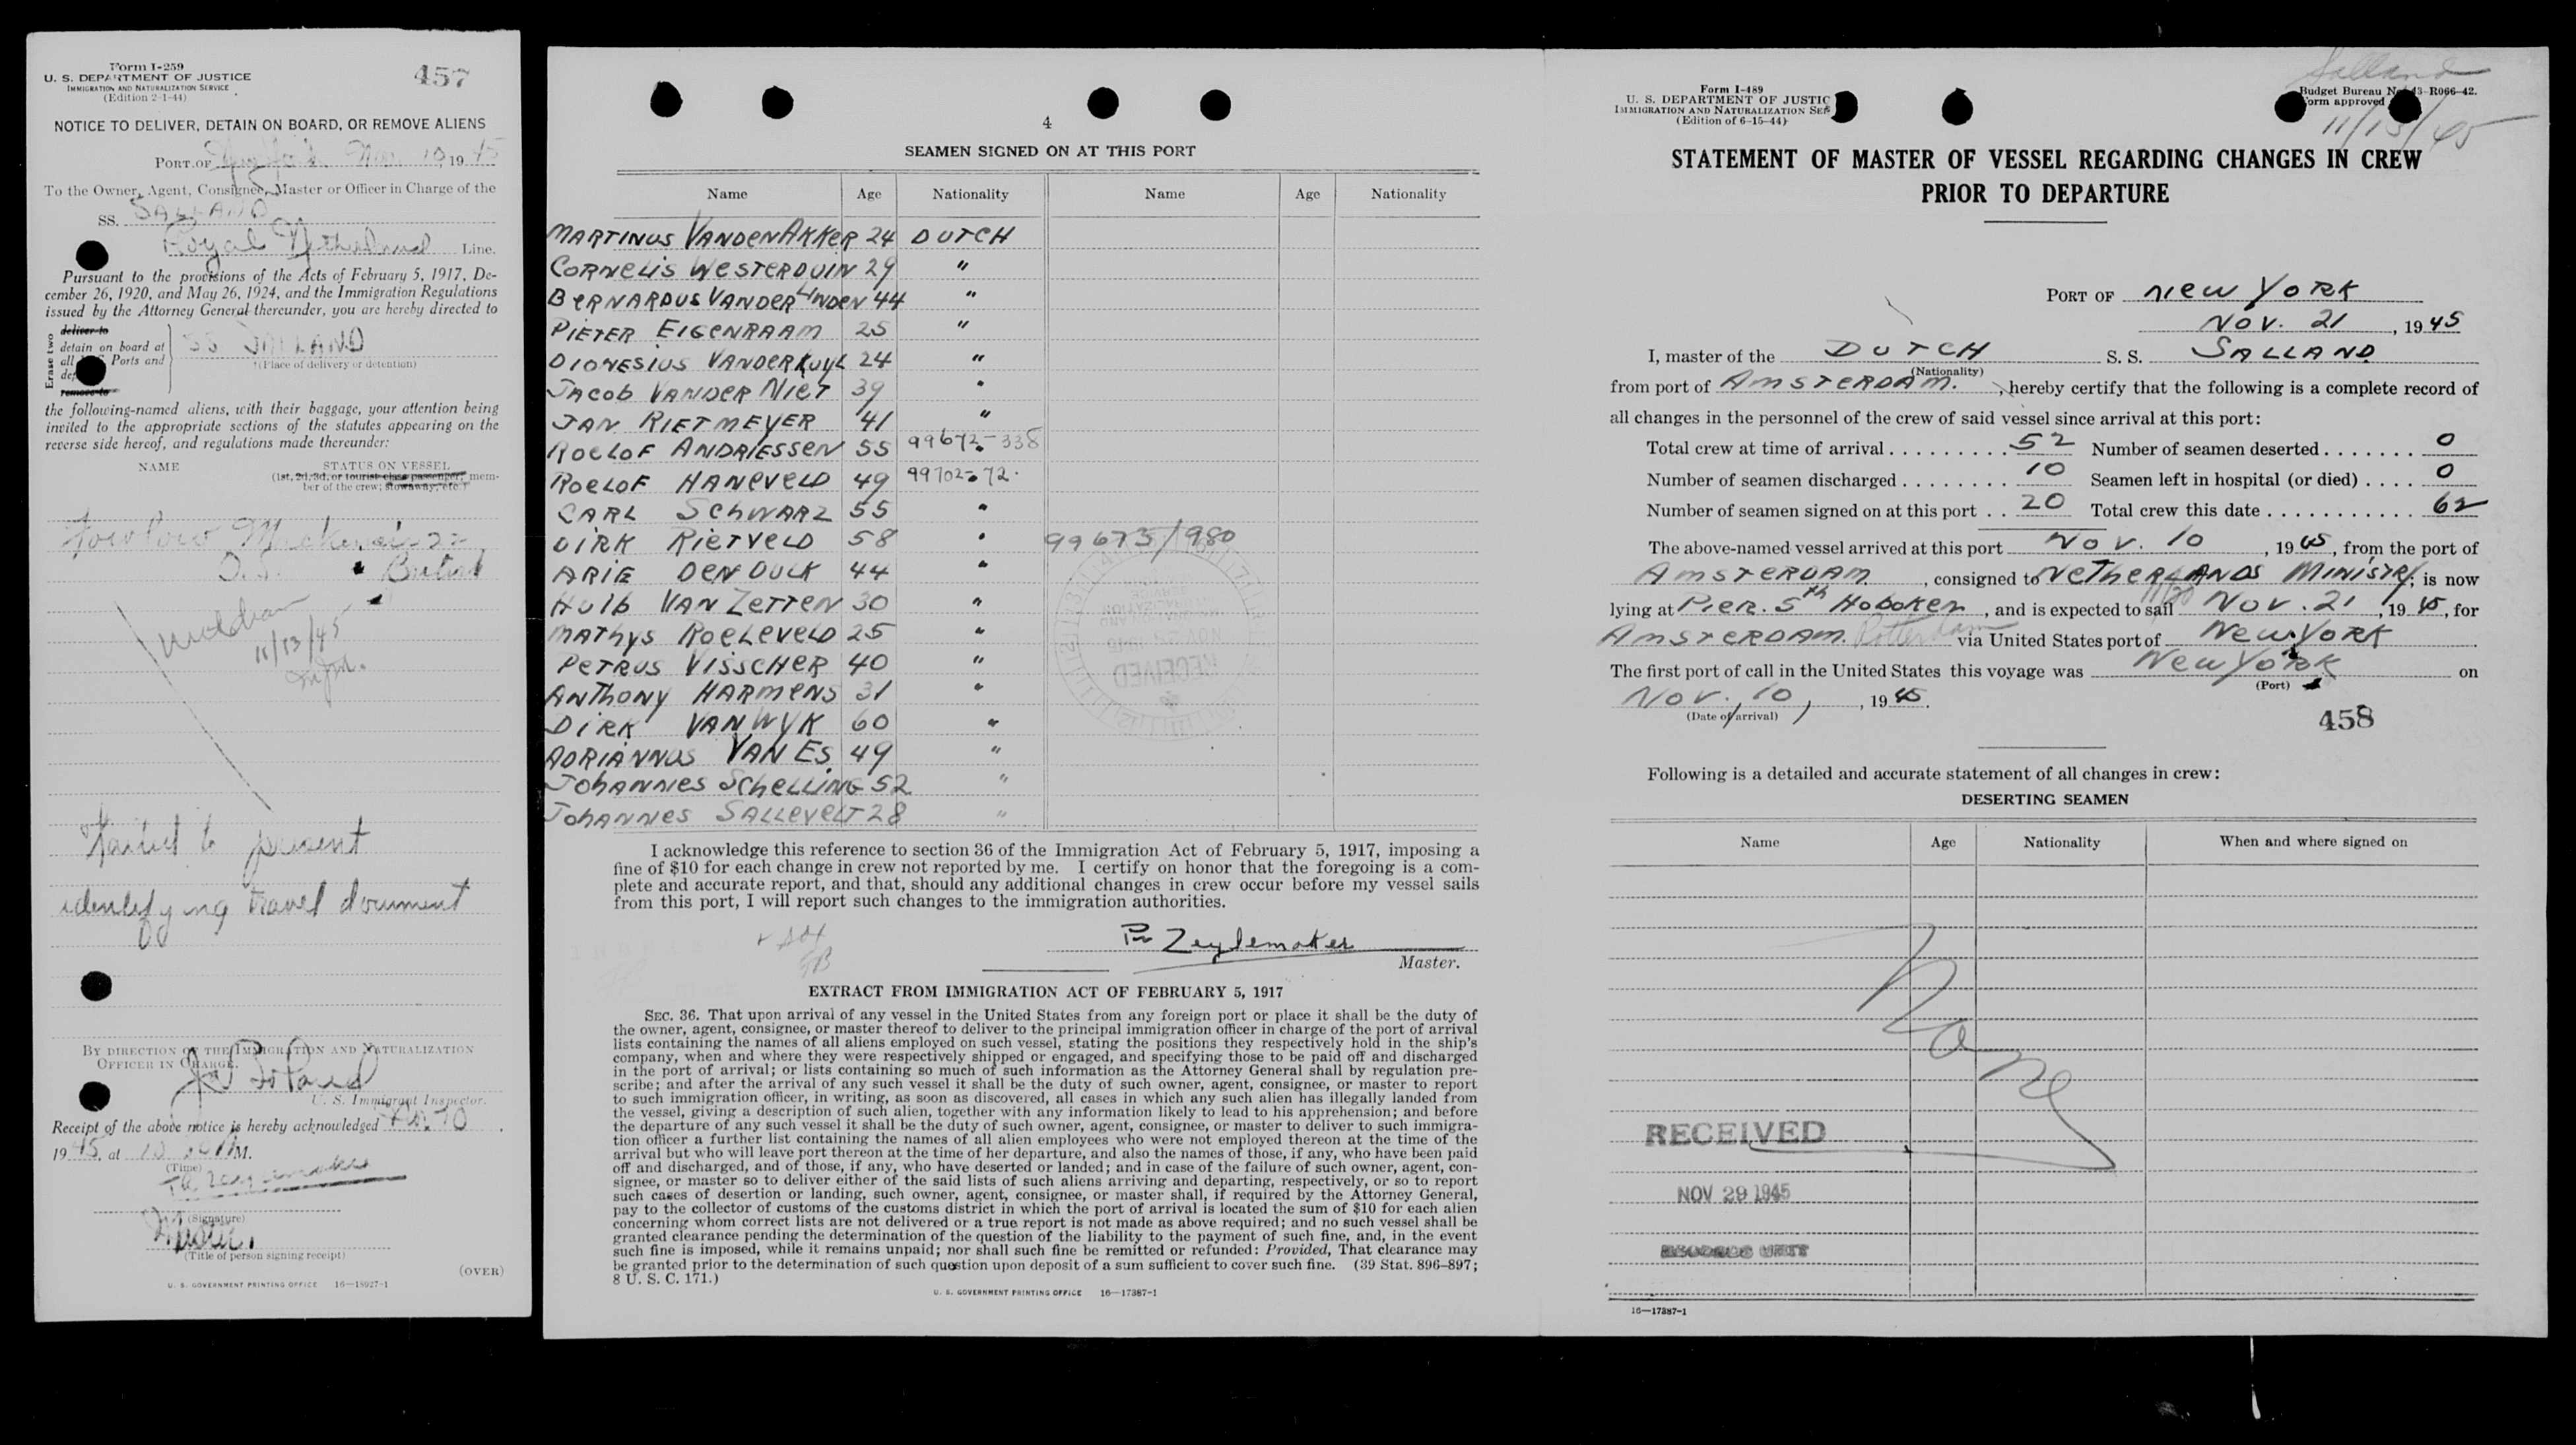 Form I-259
U. S. DEPARTMENT OF JUSTICE
IMMIGRATION AND NATURALIZATION SERVICE
(Edition 2-1-44)
457
NOTICE TO DELIVER, DETAIN ON BOARD, OR REMOVE ALIENS
PORT OF New York 10 1945
To the Owner, Agent, Consignee, Master or Officer in Charge of the
SS. SALLAND
Royal Netherland Line.
Pursuant to the provisions of the Acts of February 5, 1917, De-
cember 26, 1920, and May 26, 1924, and the Immigration Regulations
issued by the Attorney General thereunder, you are hereby directed to
Erase two
deliver to
detain on board at
all Ports and
remove to
SS SALLAND
(Place of delivery or detention)
the following-named aliens, with their baggage, your attention being
invited to the appropriate sections of the statutes appearing on the
reverse side hereof, and regulations made thereunder:
NAME STATUS ON VESSEL
(1st, 2d, 3d, or tourist class passenger; mem-
ber of the crew; stowaway, etc.)
22
British
11/13/45
Failed to present
identifying travel document
BY DIRECTION OF THE IMMIGRATION AND NATURALIZATION
OFFICER IN CHARGE.
U. S. Immigrant Inspector.
Receipt of the above notice is hereby acknowledged Nov. 10
1945, at 10 M.
(Time)
Zeylemaker
(Signature)
Master.
(Title of person signing receipt)
(OVER)
U. S. GOVERNMENT PRINTING OFFICE 16—18927-1
4
SEAMEN SIGNED ON AT THIS PORT
Name Age Nationality Name Age Nationality
MARTINUS VANDENAKKER 24 DUTCH
CORNELIS WESTERDUIN 29 "
BERNARDUS VANDER LINDEN 44 "
PIETER EIGENRAAM 25 "
DIONESIUS VANDERKUYL 24 "
JACOB VANDER NIET 39 "
JAN RIETMEYER 41 "
ROELOF ANDRIESSEN 55 99672-338
ROELOF HANEVELD 49 99702-72.
CARL SCHWARZ 55 "
DIRK RIETVELD 58 " 99673/980
ARIE DEN DULK 44 "
HUIB VAN ZETTEN 30 "
MATHYS ROELEVELD 25 "
PETRUS VISSCHER 40 "
ANTHONY HARMENS 31 "
DIRK VAN WYK 60 "
ADRIANNUS VAN ES 49 "
JOHANNES SCHELLING 52 "
JOHANNES SALLEVELT 28 "
RECEIVED
I acknowledge this reference to section 36 of the Immigration Act of February 5, 1917, imposing a
fine of $10 for each change in crew not reported by me. I certify on honor that the foregoing is a com-
plete and accurate report, and that, should any additional changes in crew occur before my vessel sails
from this port, I will report such changes to the immigration authorities.
Zeylemaker
Master.
EXTRACT FROM IMMIGRATION ACT OF FEBRUARY 5, 1917
SEC. 36. That upon arrival of any vessel in the United States from any foreign port or place it shall be the duty of
the owner, agent, consignee, or master thereof to deliver to the principal immigration officer in charge of the port of arrival
lists containing the names of all aliens employed on such vessel, stating the positions they respectively hold in the ship's
company, when and where they were respectively shipped or engaged, and specifying those to be paid off and discharged
in the port of arrival; or lists containing so much of such information as the Attorney General shall by regulation pre-
scribe; and after the arrival of any such vessel it shall be the duty of such owner, agent, consignee, or master to report
to such immigration officer, in writing, as soon as discovered, all cases in which any such alien has illegally landed from
the vessel, giving a description of such alien, together with any information likely to lead to his apprehension; and before
the departure of any such vessel it shall be the duty of such owner, agent, consignee, or master to deliver to such immigra-
tion officer a further list containing the names of all alien employees who were not employed thereon at the time of the
arrival but who will leave port thereon at the time of her departure, and also the names of those, if any, who have been paid
off and discharged, and of those, if any, who have deserted or landed; and in case of the failure of such owner, agent, con-
signee, or master so to deliver either of the said lists of such aliens arriving and departing, respectively, or so to report
such cases of desertion or landing, such owner, agent, consignee, or master shall, if required by the Attorney General,
pay to the collector of customs of the customs district in which the port of arrival is located the sum of $10 for each alien
concerning whom correct lists are not delivered or a true report is not made as above required; and no such vessel shall be
granted clearance pending the determination of the question of the liability to the payment of such fine, and, in the event
such fine is imposed, while it remains unpaid; nor shall such fine be remitted or refunded: Provided, That clearance may
be granted prior to the determination of such question upon deposit of a sum sufficient to cover such fine. (39 Stat. 896–897;
8 U. S. C. 171.)
U. S. GOVERNMENT PRINTING OFFICE 16—17387-1
Form I-489
U. S. DEPARTMENT OF JUSTIC
IMMIGRATION AND NATURALIZATION SER
(Edition of 6-15-44)
Salland
Budget Bureau No. 43-R066-42.
Form approved
11/15/45
STATEMENT OF MASTER OF VESSEL REGARDING CHANGES IN CREW
PRIOR TO DEPARTURE
PORT OF NEW YORK
NOV. 21, 1945
I, master of the DUTCH S. S. SALLAND
(Nationality)
from port of AMSTERDAM., hereby certify that the following is a complete record of
all changes in the personnel of the crew of said vessel since arrival at this port:
Total crew at time of arrival 52 Number of seamen deserted 0
Number of seamen discharged 10 Seamen left in hospital (or died) 0
Number of seamen signed on at this port 20 Total crew this date 62
The above-named vessel arrived at this port NOV. 10, 1945, from the port of
AMSTERDAM, consigned to NETHERLANDS MINISTRY; is now
lying at PIER. 5th HOBOKEN, and is expected to sail 11/20 NOV. 21, 1945, for
AMSTERDAM. Rotterdam via United States port of NEW YORK
The first port of call in the United States this voyage was NEW YORK on
(Port)
NOV. 10, 1945.
(Date of arrival)
458
Following is a detailed and accurate statement of all changes in crew:
DESERTING SEAMEN
Name Age Nationality When and where signed on
None
RECEIVED
NOV 29 1945
RECORDS UNIT
16—17387-1